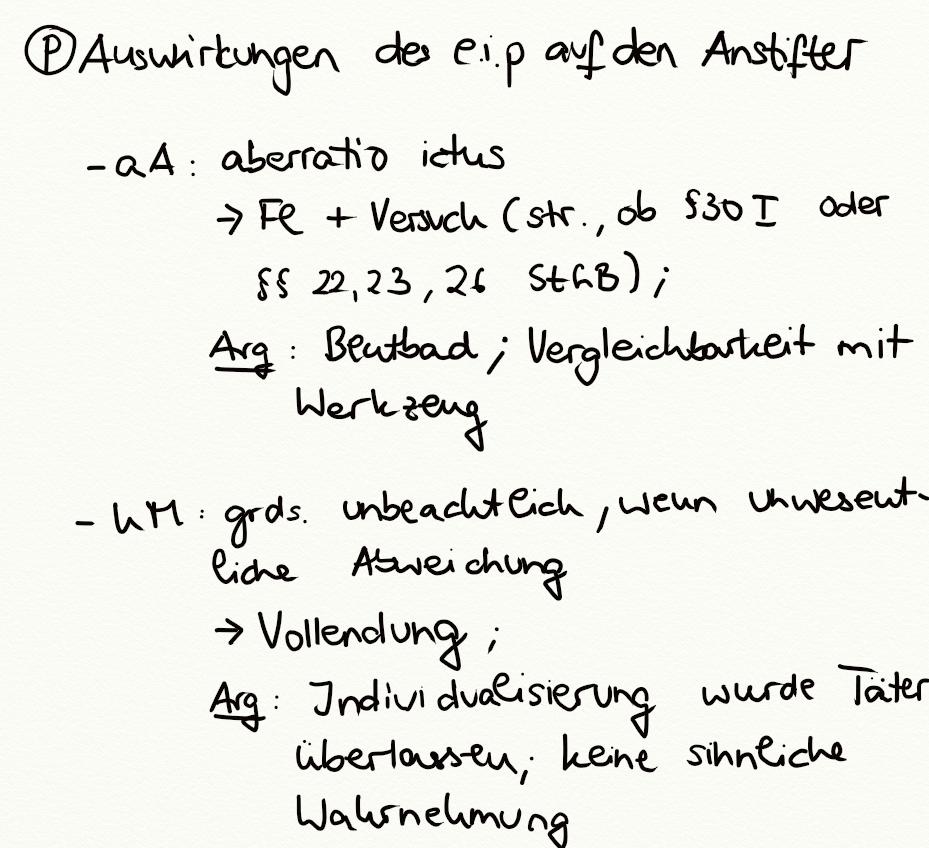 Ⓟ Auswirkungen des e.i.p auf den Anstifter
- aA: aberratio ictus
→ Fl + Versuch (str., ob §30 I oder
§§ 22, 23, 26 StGB);
Arg: Blutbad; Vergleichbarkeit mit
Werkzeug
- hM: grds. unbeachtlich, wenn unwesent-
liche Abweichung
→ Vollendung;
Arg: Individualisierung wurde Täter
überlassen; keine sinnliche
Wahrnehmung